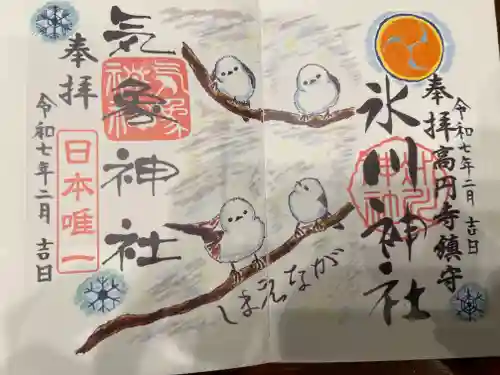 奉拝
高円寺鎮守
氷川神社
令和七年二月 吉日
しまえなが
奉拝
気象神社
気象神社
日本唯一
令和七年二月 吉日